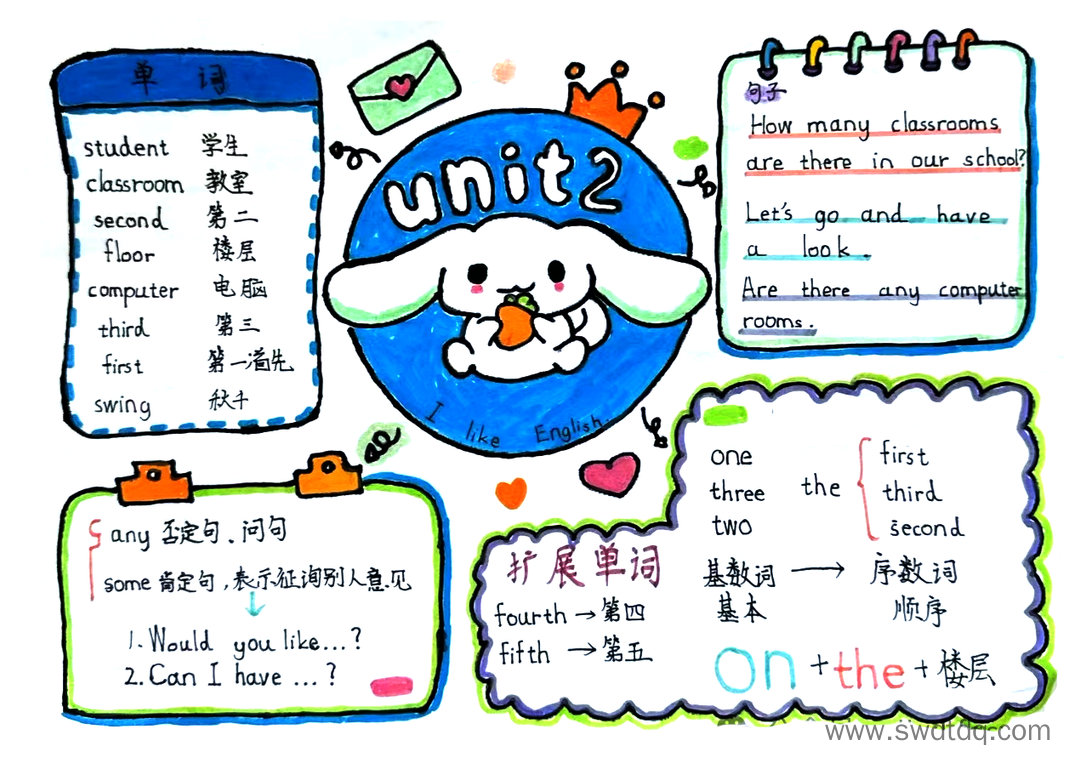 单词
student 学生
classroom 教室
second 第二
floor 楼层
computer 电脑
third 第三
first 第一,首先
swing 秋千
unit2
I like English.
句子
How many classrooms
are there in our school?
Let's go and have
a look.
Are there any computer
rooms.
any 否定句.问句
some 肯定句,表示征询别人意见
↓
1. Would you like...?
2. Can I have ...?
扩展单词
fourth → 第四
fifth → 第五
one the first
three third
two second
基数词 → 序数词
基本 顺序
on + the + 楼层
www.swdtdq.com